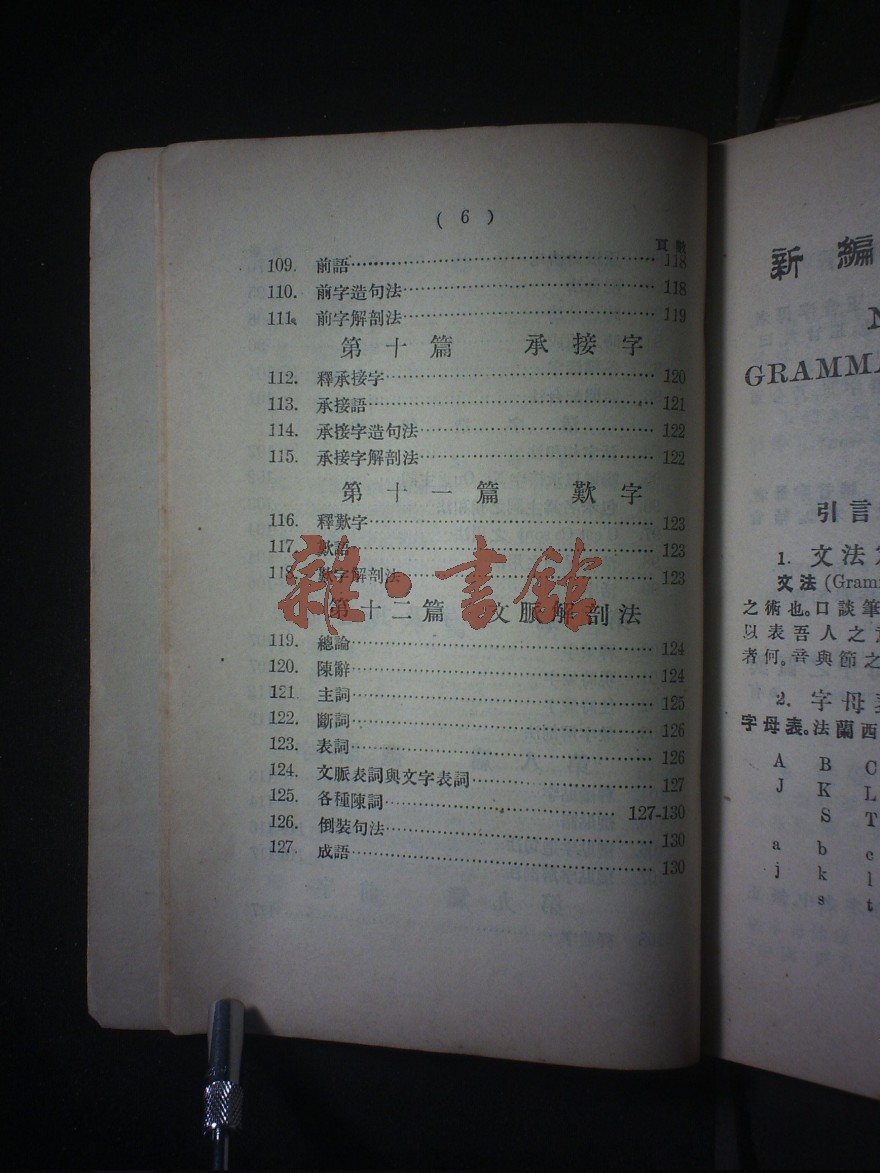 ( 6 )
頁數
109. 前語 118
110. 前字造句法 118
111. 前字解剖法 119
第十篇 承接字
112. 釋承接字 120
113. 承接語 121
114. 承接字造句法 122
115. 承接字解剖法 122
第十一篇 歎字
116. 釋歎字 123
117. 歎語 123
118. 歎字解剖法 123
雜·書館
第十二篇 文脈解剖法
119. 總論 124
120. 陳辭 124
121. 主詞 125
122. 斷詞 126
123. 表詞 126
124. 文脈表詞與文字表詞 127
125. 各種陳詞 127-130
126. 倒裝句法 130
127. 成語 130
新編
N
GRAMMA
引言
1. 文法
文法 (Gramm
之術也。口談筆
以表吾人之
者何。音與節之
2. 字母
字母表。法蘭西
A B C
J K L
S T
a b c
j k l
s t